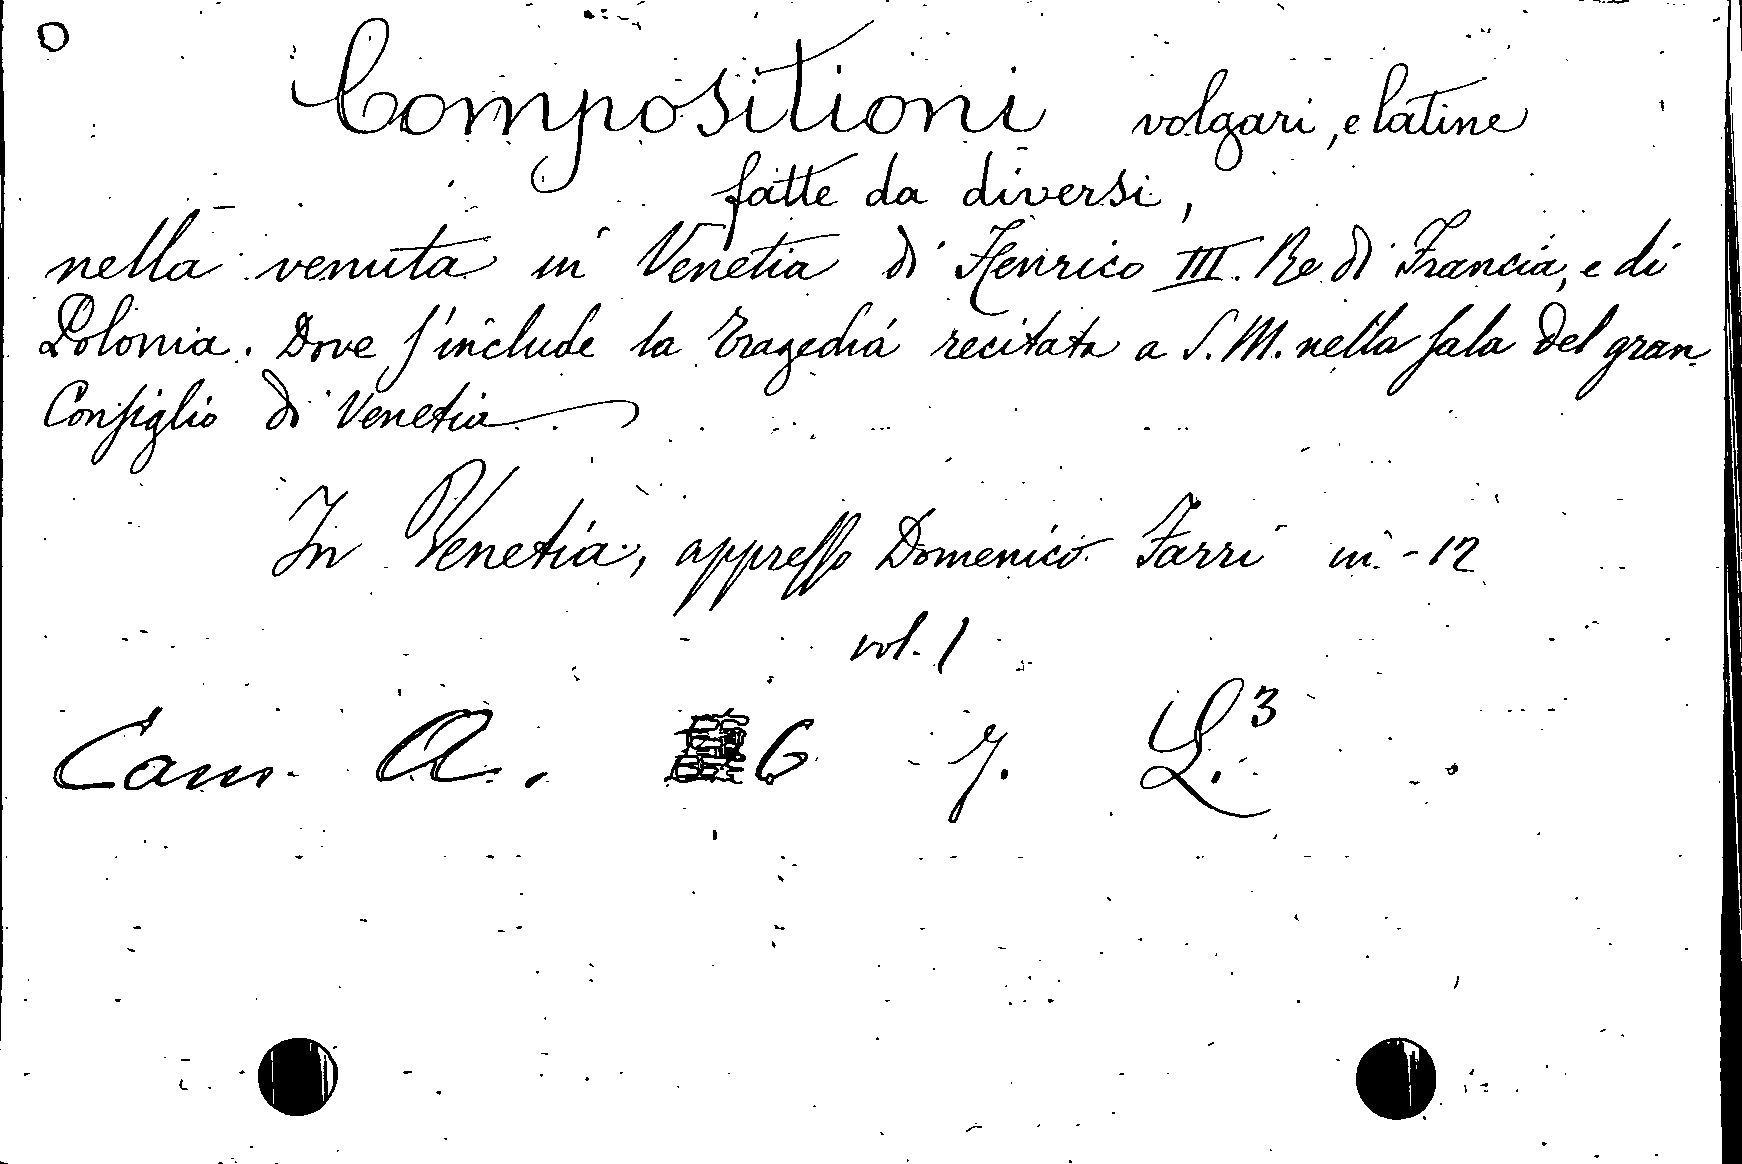 Compositioni volgari, e latine
fatte da diversi,
nella venuta in Venetia di Henrico III. Re di Francia, e di
Polonia. Dove s'include la Tragedia recitata a S. M. nella sala del gran
Consiglio di Venetia
In Venetia, appresso Domenico Farri in-12
vol. 1
Cam. A. 6 7. L.3